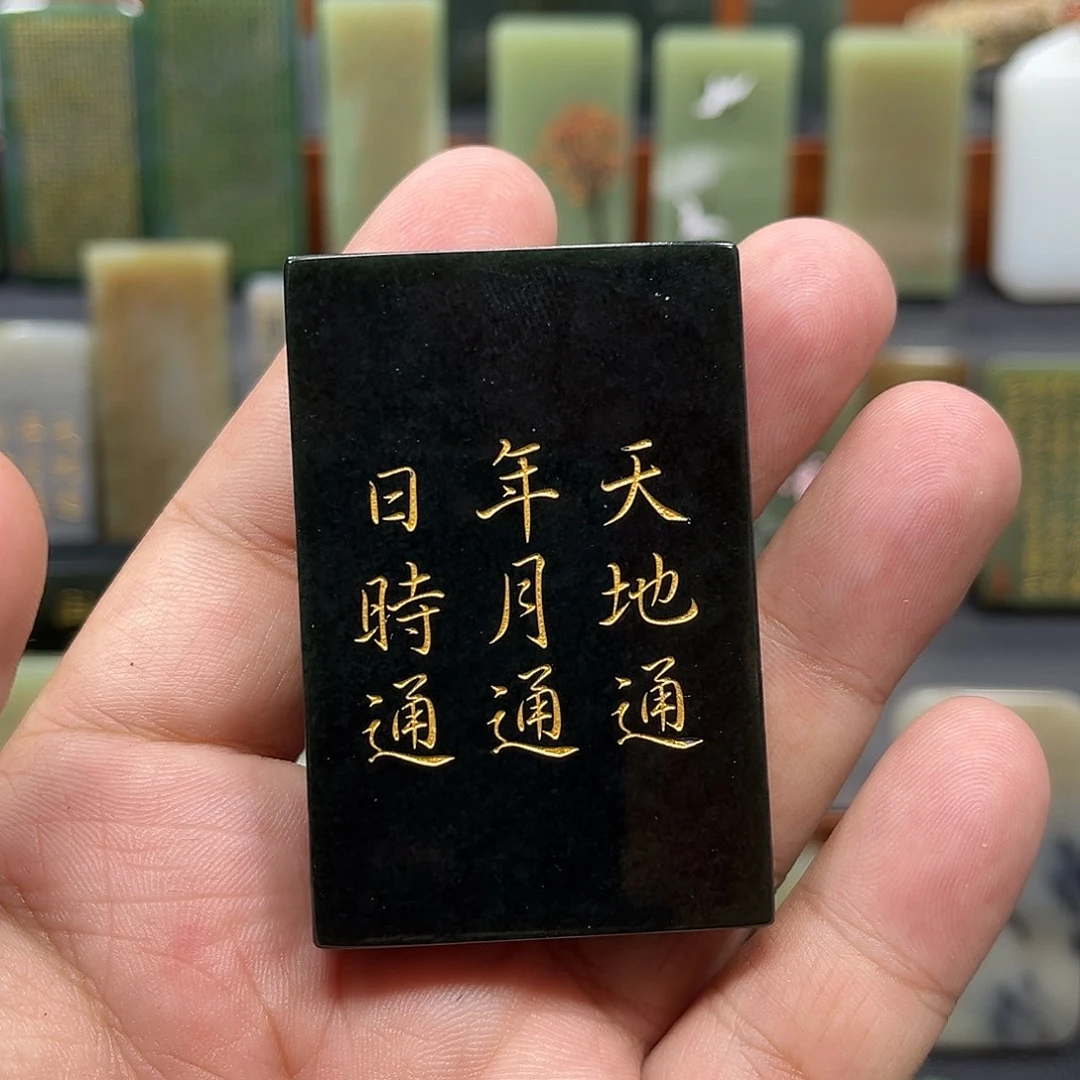 天地通
年月通
日時通